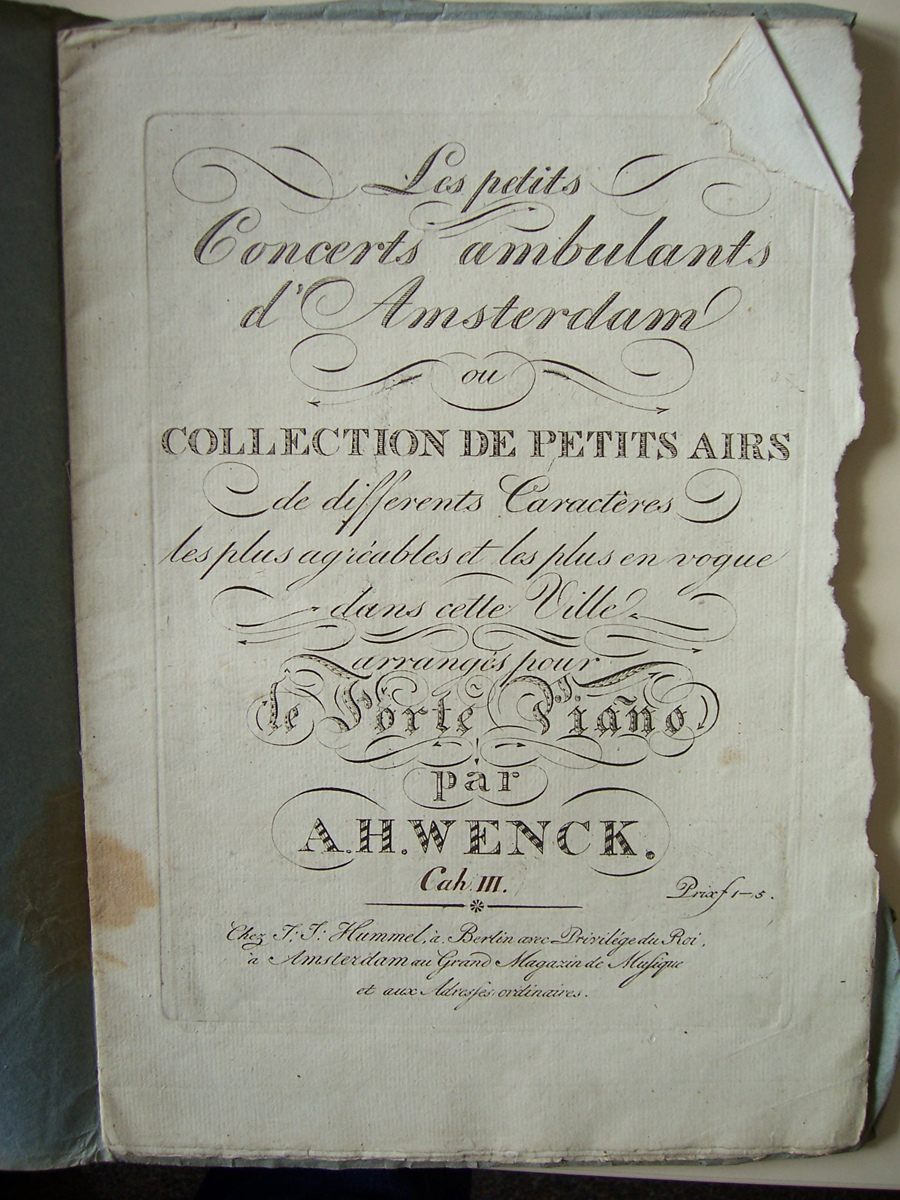 Les petits
Concerts ambulants
d'Amsterdam
ou
COLLECTION DE PETITS AIRS
de differents Caractères
les plus agréables et les plus en vogue
dans cette Ville
arrangés pour
le Forte Piano
par
A.H.WENCK.
Cah. III.
Prix f 1-5.
Chez J: J: Hummel, à Berlin avec Privilége du Roi,
à Amsterdam au Grand Magazin de Musique
et aux Adresses ordinaires.